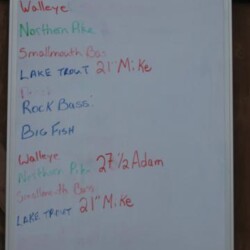 Walleye
Northern Pike
Smallmouth Bass
LAKE TROUT 21" Mike
ROCK BASS
BIG FISH
Walleye
Northern Pike 27 1/2 Adam
Smallmouth Bass
LAKE TROUT 21" Mike